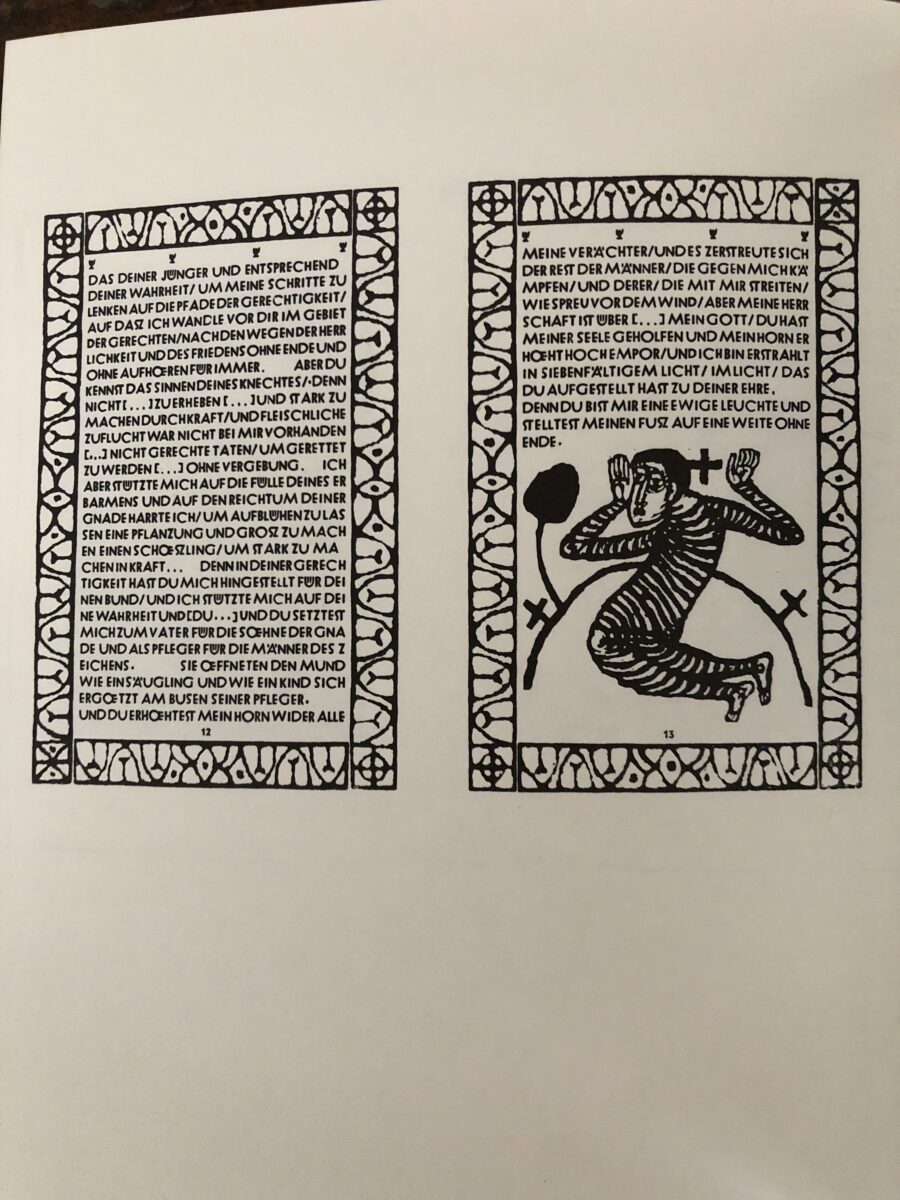 DAS DEINER JÜNGER UND ENTSPRECHEND
DEINER WAHRHEIT/ UM MEINE SCHRITTE ZU
LENKEN AUF DIE PFADE DER GERECHTIGKEIT/
AUF DASZ ICH WANDLE VOR DIR IM GEBIET
DER GERECHTEN/NACH DEN WEGEN DER HERR
LICHKEIT UND DES FRIEDENS OHNE ENDE UND
OHNE AUFHŒREN FÜR IMMER. ABER DU
KENNST DAS SINNEN DEINES KNECHTES/·DENN
NICHT [...] ZU ERHEBEN [...] UND STARK ZU
MACHEN DURCH KRAFT/UND FLEISCHLICHE
ZUFLUCHT WAR NICHT BEI MIR VORHANDEN
[...] NICHT GERECHTE TATEN/ UM GERETTET
ZU WERDEN [...] OHNE VERGEBUNG. ICH
ABER STÜTZTE MICH AUF DIE FÜLLE DEINES ER
BARMENS UND AUF DEN REICHTUM DEINER
GNADE HARRTE ICH/ UM AUFBLÜHEN ZU LAS
SEN EINE PFLANZUNG UND GROSZ ZU MACH
EN EINEN SCHŒSZLING/ UM STARK ZU MA
CHEN IN KRAFT... DENN IN DEINER GERECH
TIGKEIT HAST DU MICH HINGESTELLT FÜR DEI
NEN BUND/ UND ICH STÜTZTE MICH AUF DEI
NE WAHRHEIT UND [DU...] UND DU SETZTEST
MICH ZUM VATER FÜR DIE SŒHNE DER GNA
DE UND ALS PFLEGER FÜR DIE MÄNNER DES Z
EICHENS. SIE ŒFFNETEN DEN MUND
WIE EIN SÄUGLING UND WIE EIN KIND SICH
ERGŒTZT AM BUSEN SEINER PFLEGER.
UND DU ERHŒHTEST MEIN HORN WIDER ALLE
12
MEINE VERÄCHTER/UND ES ZERSTREUTE SICH
DER REST DER MÄNNER/DIE GEGEN MICH KÄ
MPFEN/ UND DERER/ DIE MIT MIR STREITEN/
WIE SPREU VOR DEM WIND/ ABER MEINE HERR
SCHAFT IST ÜBER [...] MEIN GOTT/ DU HAST
MEINER SEELE GEHOLFEN UND MEIN HORN ER
HŒHT HOCH EMPOR/UND ICH BIN ERSTRAHLT
IN SIEBENFÄLTIGEM LICHT/ IM LICHT/ DAS
DU AUFGESTELLT HAST ZU DEINER EHRE.
DENN DU BIST MIR EINE EWIGE LEUCHTE UND
STELLTEST MEINEN FUSZ AUF EINE WEITE OHNE
ENDE.
13